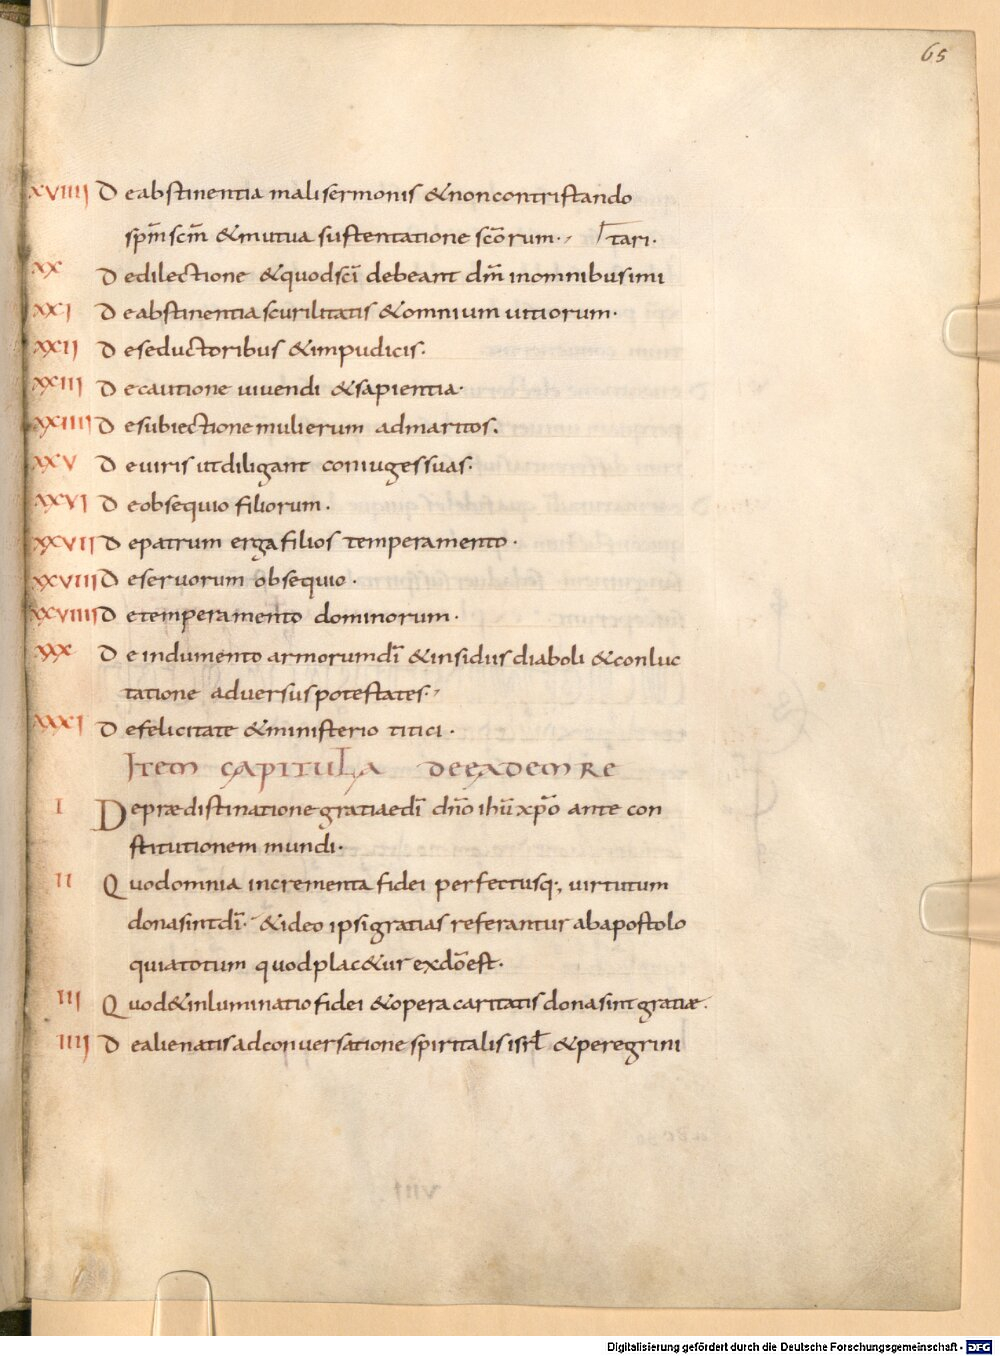 65
XVIIII De abstinentia mali sermonis & non contristando
sp̄m scm̄ & mutua sustentatione scōrum. tari.
XX De dilectione & quod sc̄i debeant dm̄ in omnibus imi
XXI De abstinentia scurilitatis & omnium uitiorum.
XXII De seductoribus & impudicis.
XXIII De cautione uiuendi & sapientia.
XXIIII De subiectione mulierum ad maritos.
XXV De uiris ut diligant coniuges suas.
XXVI De obsequio filiorum.
XXVII De patrum erga filios temperamento.
XXVIII De seruorum obsequio.
XXVIIII De temperamento dominorum.
XXX De indumento armorum dī & insidiis diaboli & conluc
tatione aduersus potestates.
XXXI De felicitate & ministerio titici.
Item capitula de eadem re
I De prædistinatione gratiae dī in dn̄o ihū xp̄o ante con
stitutionem mundi.
II Quod omnia incrementa fidei perfectusq; uirtutum
dona sint dī. & ideo ipsi gratias referantur ab apostolo
quia totum quod plac&ur ex dōest.
III Quod & inluminatio fidei & opera caritatis dona sint gratiæ.
IIII De alienatis ad conuersatione spiritalis isrl̄ & peregrini
Digitalisierung gefördert durch die Deutsche Forschungsgemeinschaft - DFG